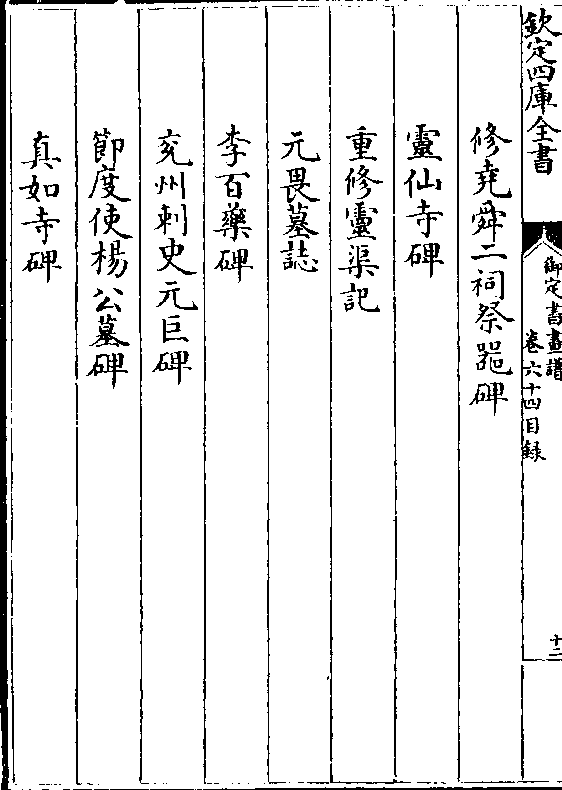 欽定四庫全書
御定書畫譜
卷六十四目録
十二
修堯舜二祠祭器碑
靈仙寺碑
重修靈渠記
元畏墓誌
李百藥碑
兖州刺史元巨碑
節度使楊公墓碑
真如寺碑